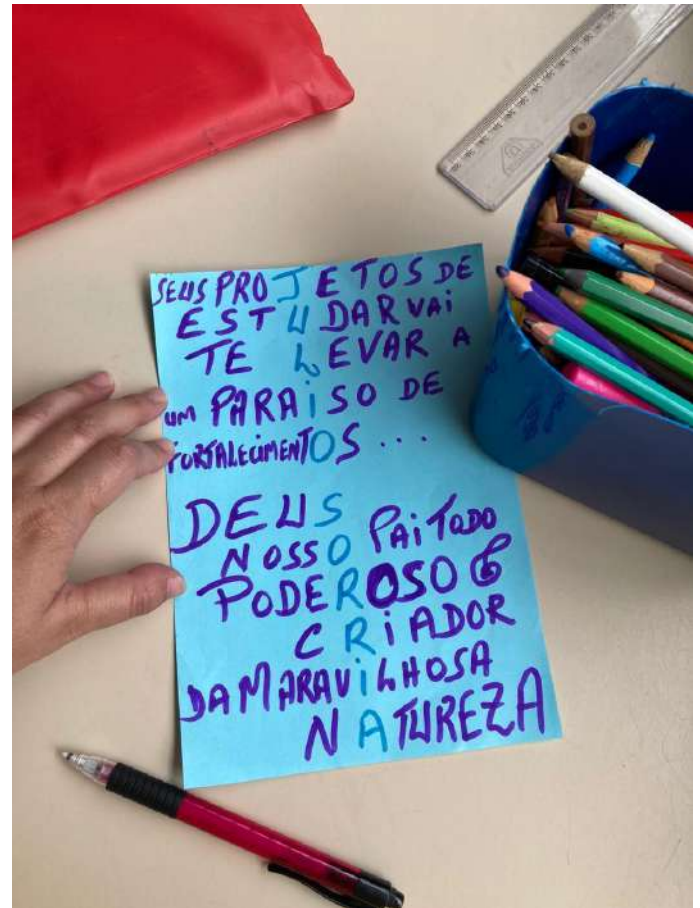 SEUS PROJETOS DE
ESTUDAR VAI
TE LEVAR A
UM PARAiSO DE
FORTALECIMENTOS...
DEUS
NOSSO PAi TODO
PODEROSO E
CRiADOR
DA MARAViLHOSA
NATUREZA